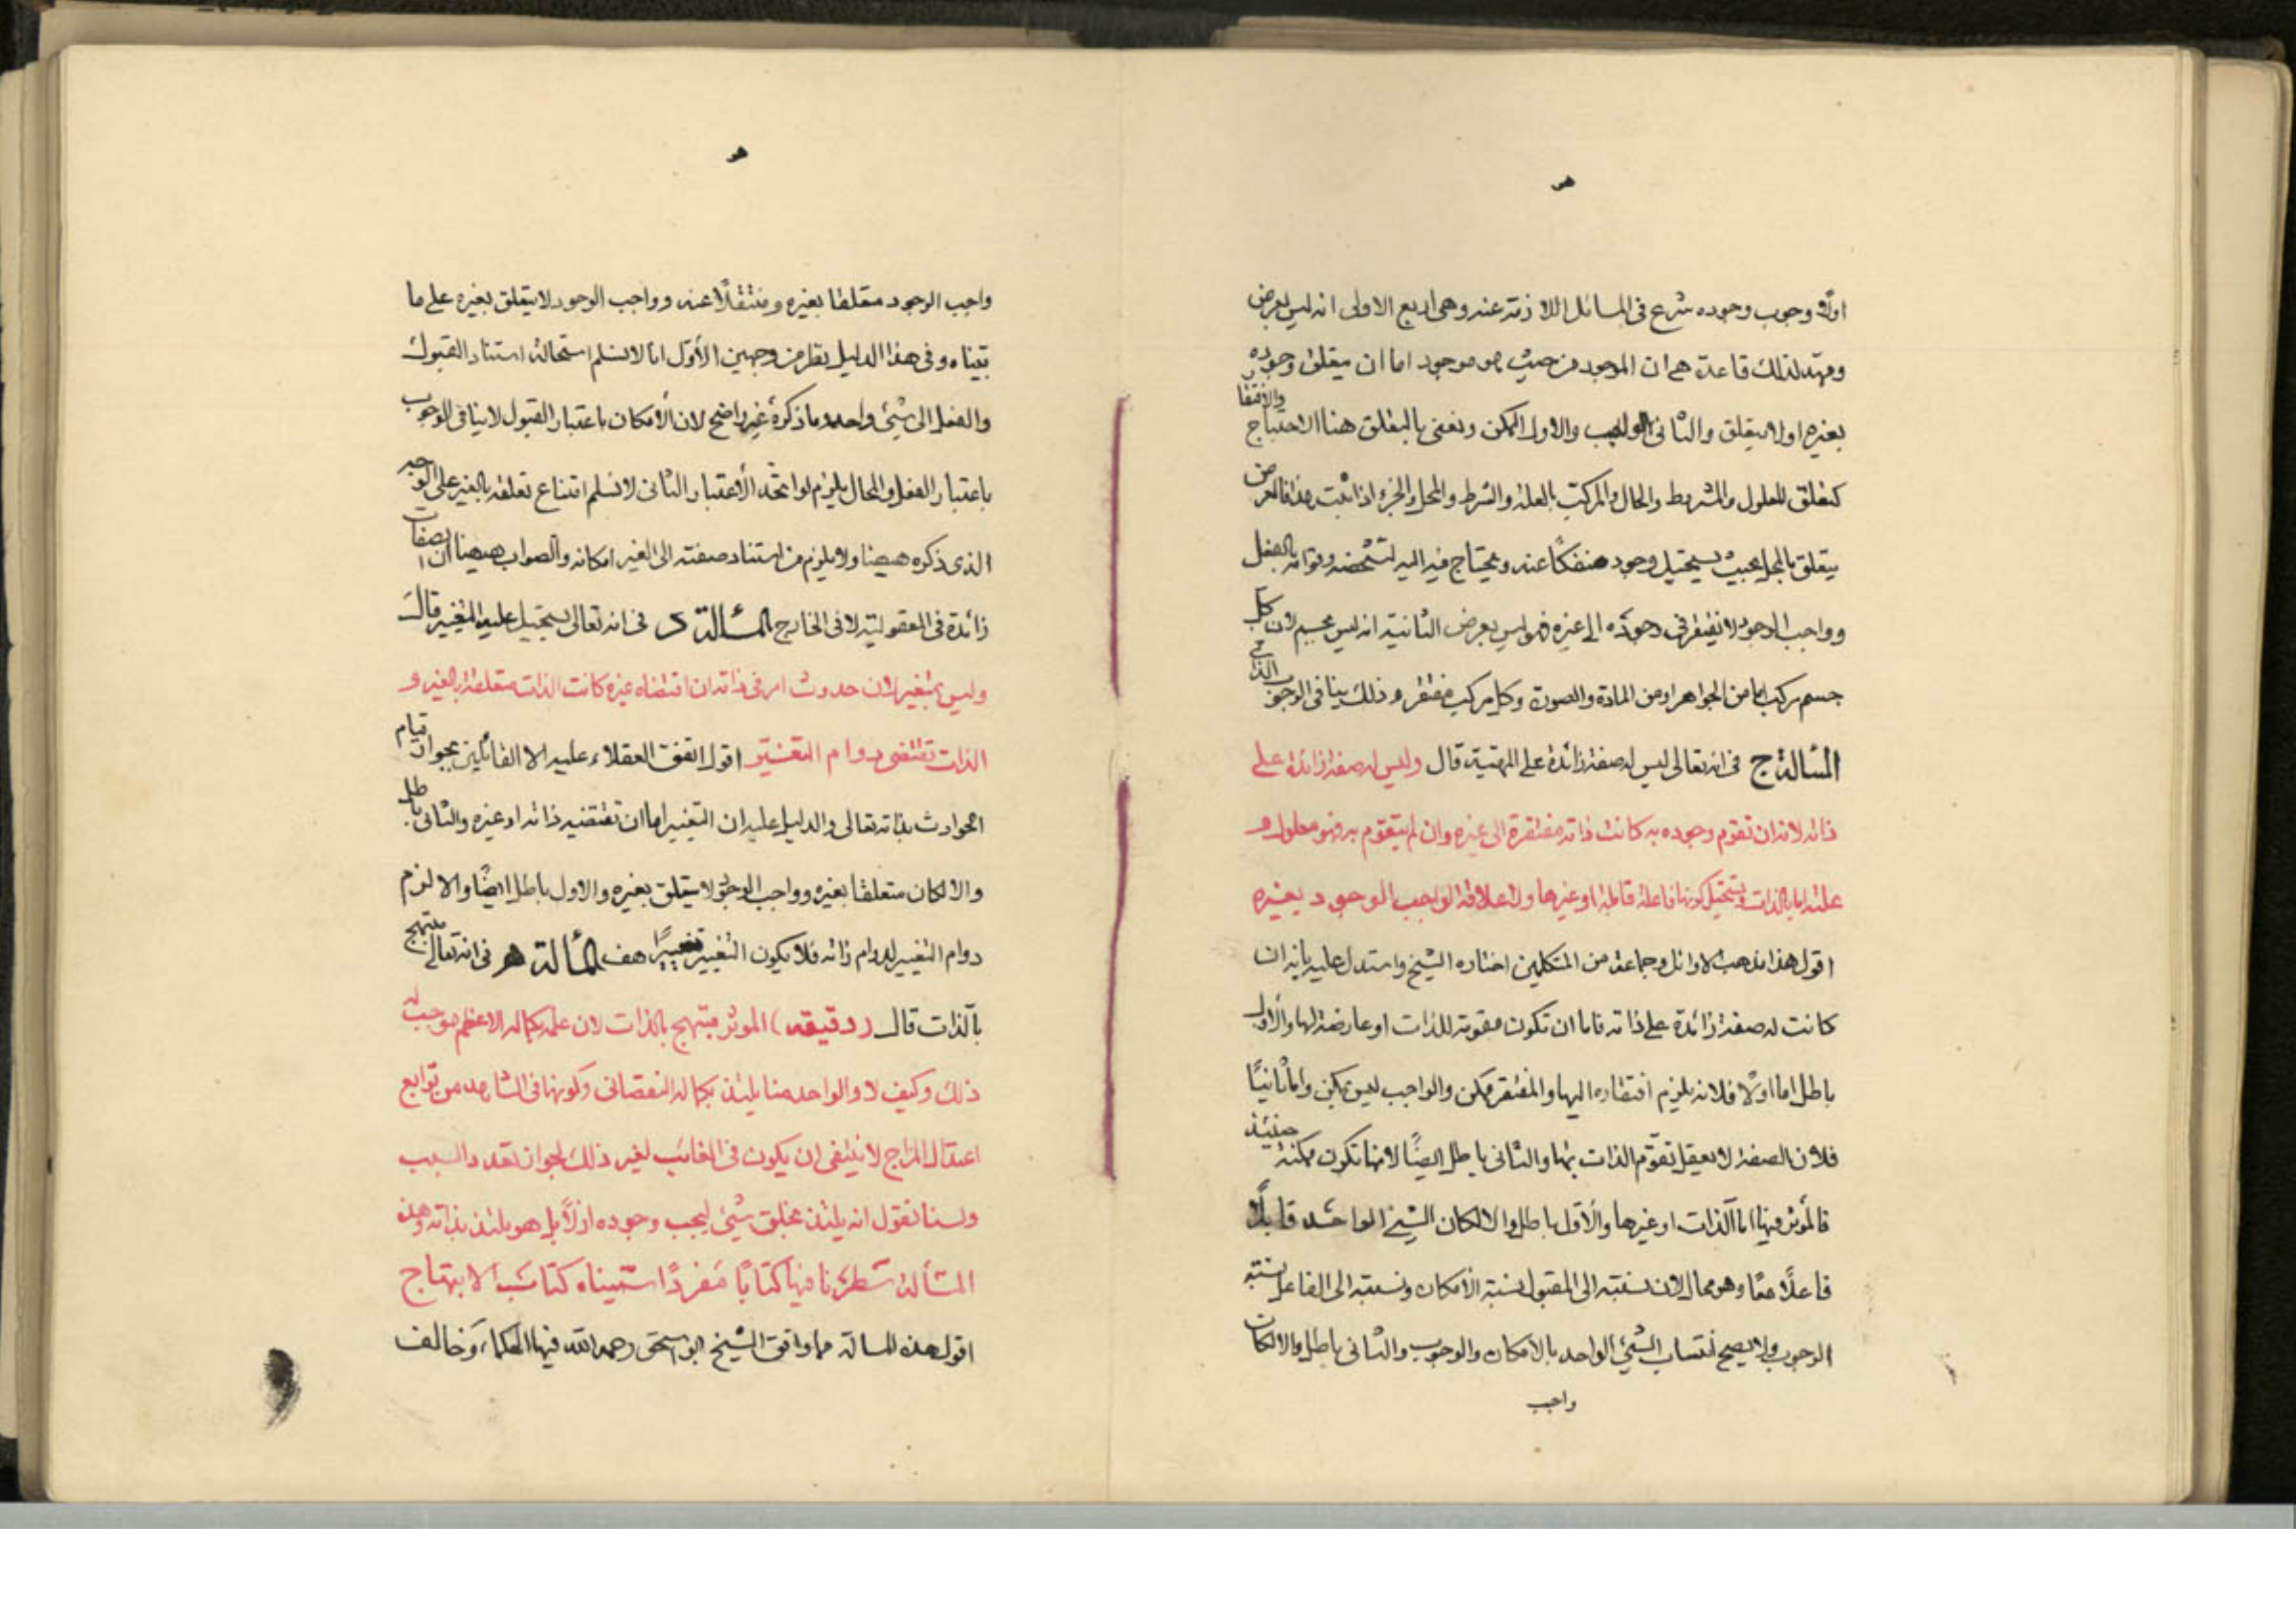 هو
اولا وجوب وجوده شرع فى المسائل اللازمة عنه وهى اربع الاولى انه ليس بعرض
ومهّد لذلك قاعدة هى ان الموجود من حيث هو موجود اما ان يتعلق وجوده
بغيره اولا يتعلق والثانى الواجب والاول الممكن ونعنى بالتعلق هنا الاحتياج والافتقار
كتعلق المعلول والمشروط والحال والمركب بالعلة والشرط والمحل والجزء اذا ثبت هذا فالعرض
يتعلق بالمحل بحيث يستحيل وجوده منفكًا عنه ويحتاج فيه اليه لتشخصه وقوامه بالفعل
وواجب الوجود لا يفتقر فى وجوده الى غيره فهو ليس بعرض الثانية انه ليس بجسم لان كل
جسم مركب اما من الجواهر او من المادة والصورة وكل مركب مفتقر وذلك ينافى الوجوب الذاتى
المسألة ج فى انه تعالى ليس له صفة زائدة على المهيّة قال وليس له صفة زائدة على
ذاته لانه ان تقوم وجوده به كانت ذاته مفتقرة الى غيره وان لم يتقوم به فهو معلول و
علته اما الذات ويستحيل كونها فاعلة قابلة او غيرها ولا علاقة لواجب الوجود بغيره
اقول هذا مذهب الاوائل وجماعة من المتكلمين اختاره الشيخ واستدل عليه بانه ان
كانت له صفة زائدة على ذاته فاما ان تكون مقومة للذات او عارضة لها والأول
باطل اما اولًا فلانه يلزم افتقاره اليها والمفتقر ممكن والواجب ليس بممكن واما ثانيًا
فلان الصفة لا يعقل تقوّم الذات بها والثانى باطل ايضًا لانها تكون حينئذ ممكنة
فالمؤثر فيها اما الذات او غيرها والأول باطل والا لكان الشيئ الواحد قابلًا
فاعلًا معًا وهو محال لان نسبته الى المقبول نسبة الأمكان ونسبته الى الفاعل نسبة
الوجوب ولا يصح انتساب الشيئ الواحد بالامكان والوجوب والثانى باطل والا لكان
واجب
هو
واجب الوجود متعلقا بغيره ومنتقلًا عنه وواجب الوجود لا يتعلق بغيره على ما
بيّناه وفى هذا الدليل نظر من وجهين الأوّل انا لا نسلم استحالة استناد القبول
والفعل الى شيئ واحد وما ذكره غير واضح لان الأمكان باعتبار القبول لا ينافى الوجوب
باعتبار الفعل والمحال يلزم لو اتحد الأعتبار الثانى لا نسلم امتناع تعلقه بالغير على الوجه
الذى ذكره هيهنا ولا يلزم من استناد صفته الى الغير امكانه والصواب هيهنا ان الصفات
زائدة فى المعقولية لا فى الخارج المسألة د فى انه تعالى يستحيل عليه التغير قال
وليس بمتغير لان حدوث امر فى ذاته ان اقتضاه غيره كانت الذات متعلقة بالغير و
الذات تقتضى دوام التغيير اقول اتفق العقلاء عليه الا القائلين بجواز قيام
الحوادث بذاته تعالى والدليل عليه ان التغير اما ان تقتضيه ذاته او غيره والثانى باطل
والا لكان متعلقا بغيره وواجب الوجود لا يتعلق بغيره والاول باطل ايضًا والا لزم
دوام التغيير لدوام ذاته فلا يكون التغيير تغييرًا هف المسألة هـ فى انه تعالى مبتهج
بالذات قال (دقيقه) المؤثر مبتهج بالذات لان علمه بكماله الاعظم موجب له
ذلك وكيف لا والواحد منا يلتذ بكماله النقصانى وكونها فى الشاهد من توابع
اعتدال المزاج لا ينتفى ان يكون فى الغائب لغير ذلك لجواز تعدد السبب
ولسنا نقول انه يلتذ بخلق شيئ ليجب وجوده ازلًا بل هو يلتذ بذاته وهذه
المسألة سطرنا فيها كتابًا مفردًا اسميناه كتاب الابتهاج
اقول هذه المسالة مما وافق الشيخ ابو اسحق رحمه الله فيها الحكماء وخالف